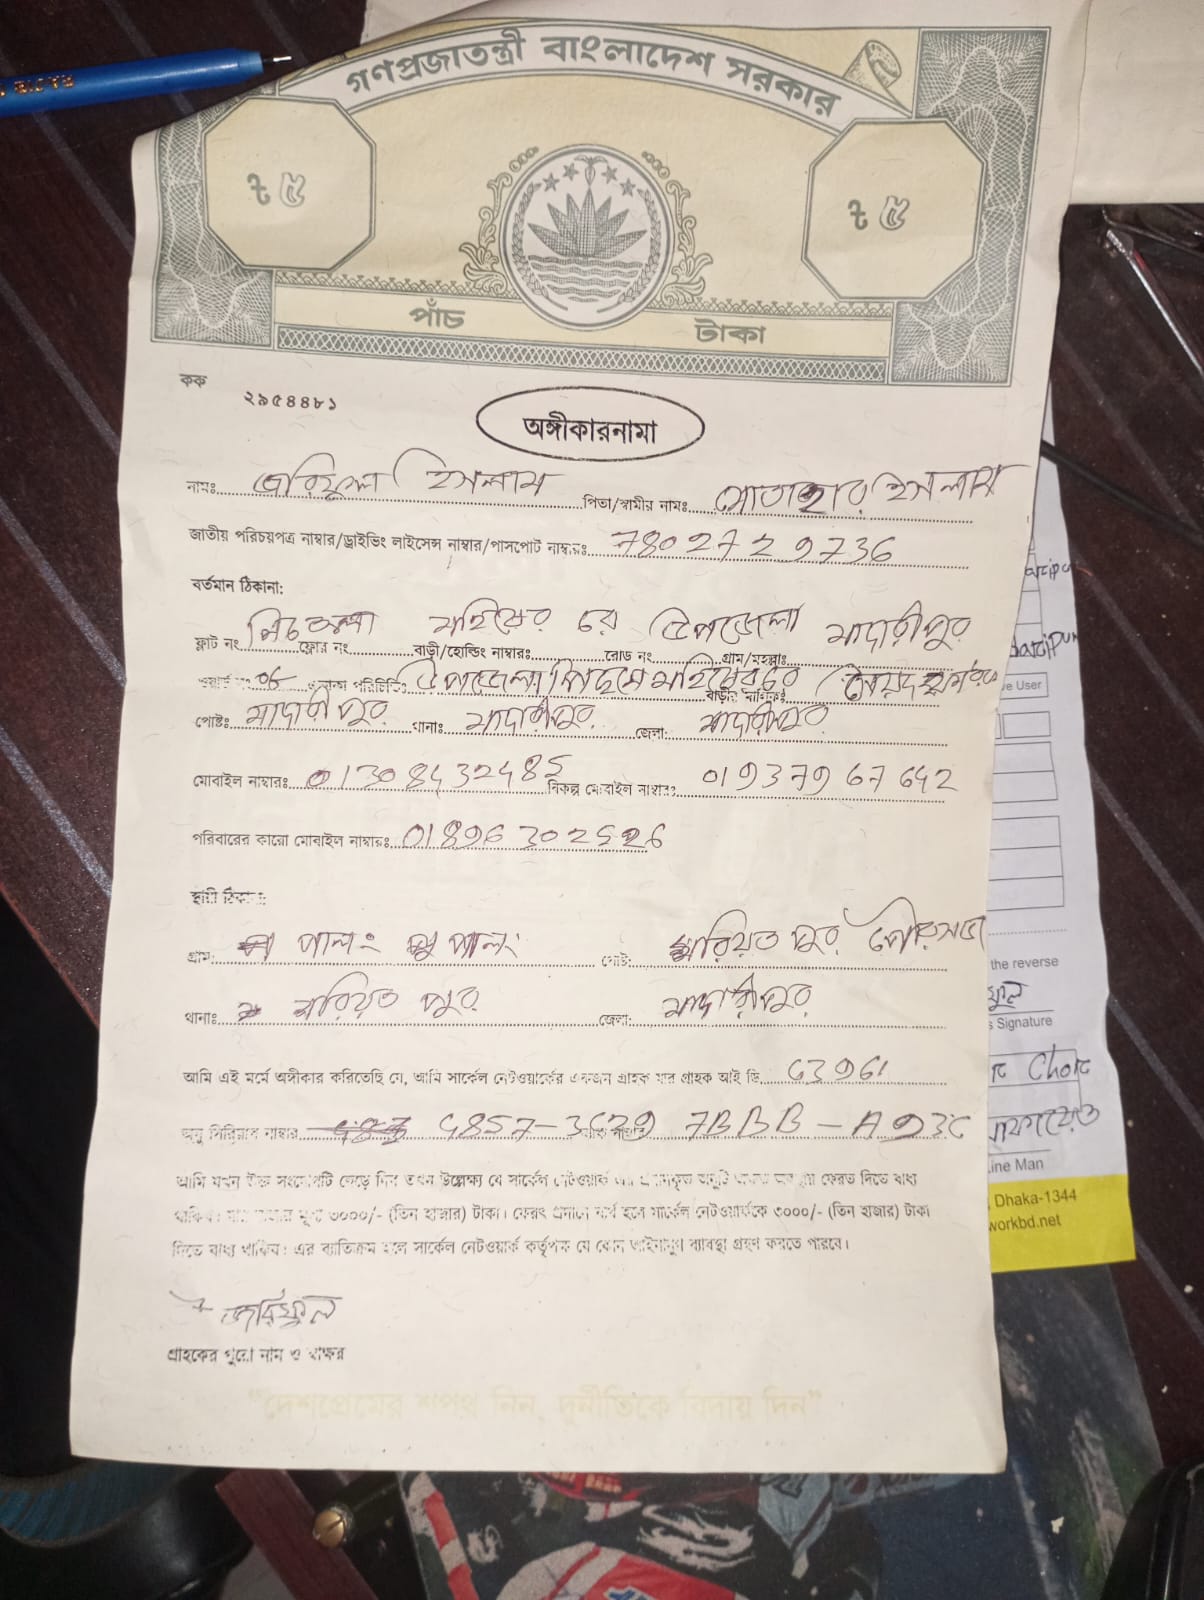 গণপ্রজাতন্ত্রী বাংলাদেশ সরকার
৳ ৫ ৳ ৫
পাঁচ টাকা
কক
২৯৫৪৪৮১
অঙ্গীকারনামা
নামঃ ইসলাম পিতা/স্বামীর নামঃ মোতাহার ইসলাম
জাতীয় পরিচয়পত্র নাম্বার/ড্রাইভিং লাইসেন্স নাম্বার/পাসপোর্ট নাম্বারঃ 7802729736
বর্তমান ঠিকানা:
ফ্লাট নং ফ্লোর নং বাড়ী/হোল্ডিং নাম্বারঃ রোড নং গ্রাম/মহল্লাঃ উপজেলা মাদারীপুর
06 পরিচিতি উপজেলা মহিষেরচর
পোষ্টঃ মাদারীপুর থানাঃ মাদারীপুর জেলা: মাদারীপুর
মোবাইল নাম্বারঃ 01308432485 বিকল্প মোবাইল নাম্বারঃ 01937967642
পরিবারের কারো মোবাইল নাম্বারঃ 01896302526
স্থায়ী ঠিকানা:
গ্রাম: পালং পোষ্ট: শরিয়তপুর পৌরসভা
থানাঃ শরিয়তপুর জেলা: মাদারীপুর
আমি এই মর্মে অঙ্গীকার করিতেছি যে, আমি সার্কেল নেটওয়ার্কের একজন গ্রাহক যার গ্রাহক আই ডি 63961
অনু সিরিয়াল নাম্বার 7BBB-A93C
আমি যখন উক্ত সংযোগটি ছেড়ে দিব তখন উল্লেক্ষ্য যে সার্কেল নেটওয়ার্ক ফেরত দিতে বাধ্য
থাকিব। ৩০০০/- (তিন হাজার) টাকা। ফেরৎ প্রদানে ব্যর্থ হলে সার্কেল নেটওয়ার্ককে ৩০০০/- (তিন হাজার) টাকা
দিতে বাধ্য থাকিব। এর ব্যতিক্রম হলে সার্কেল নেটওয়ার্ক কর্তৃপক্ষ যে কোন আইনানুগ ব্যাবস্থা গ্রহণ করতে পারবে।
গ্রাহকের পুরো নাম ও স্বাক্ষর
"দেশপ্রেমের শপথ নিন, দুর্নীতিকে বিদায় দিন"
User
the reverse
Signature
Choic
Line Man
Dhaka-1344
workbd.net